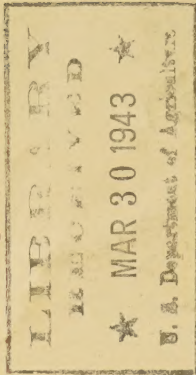 LIBRARY
RECEIVED
★ MAR 30 1943 ★
U. S. Department of Agriculture